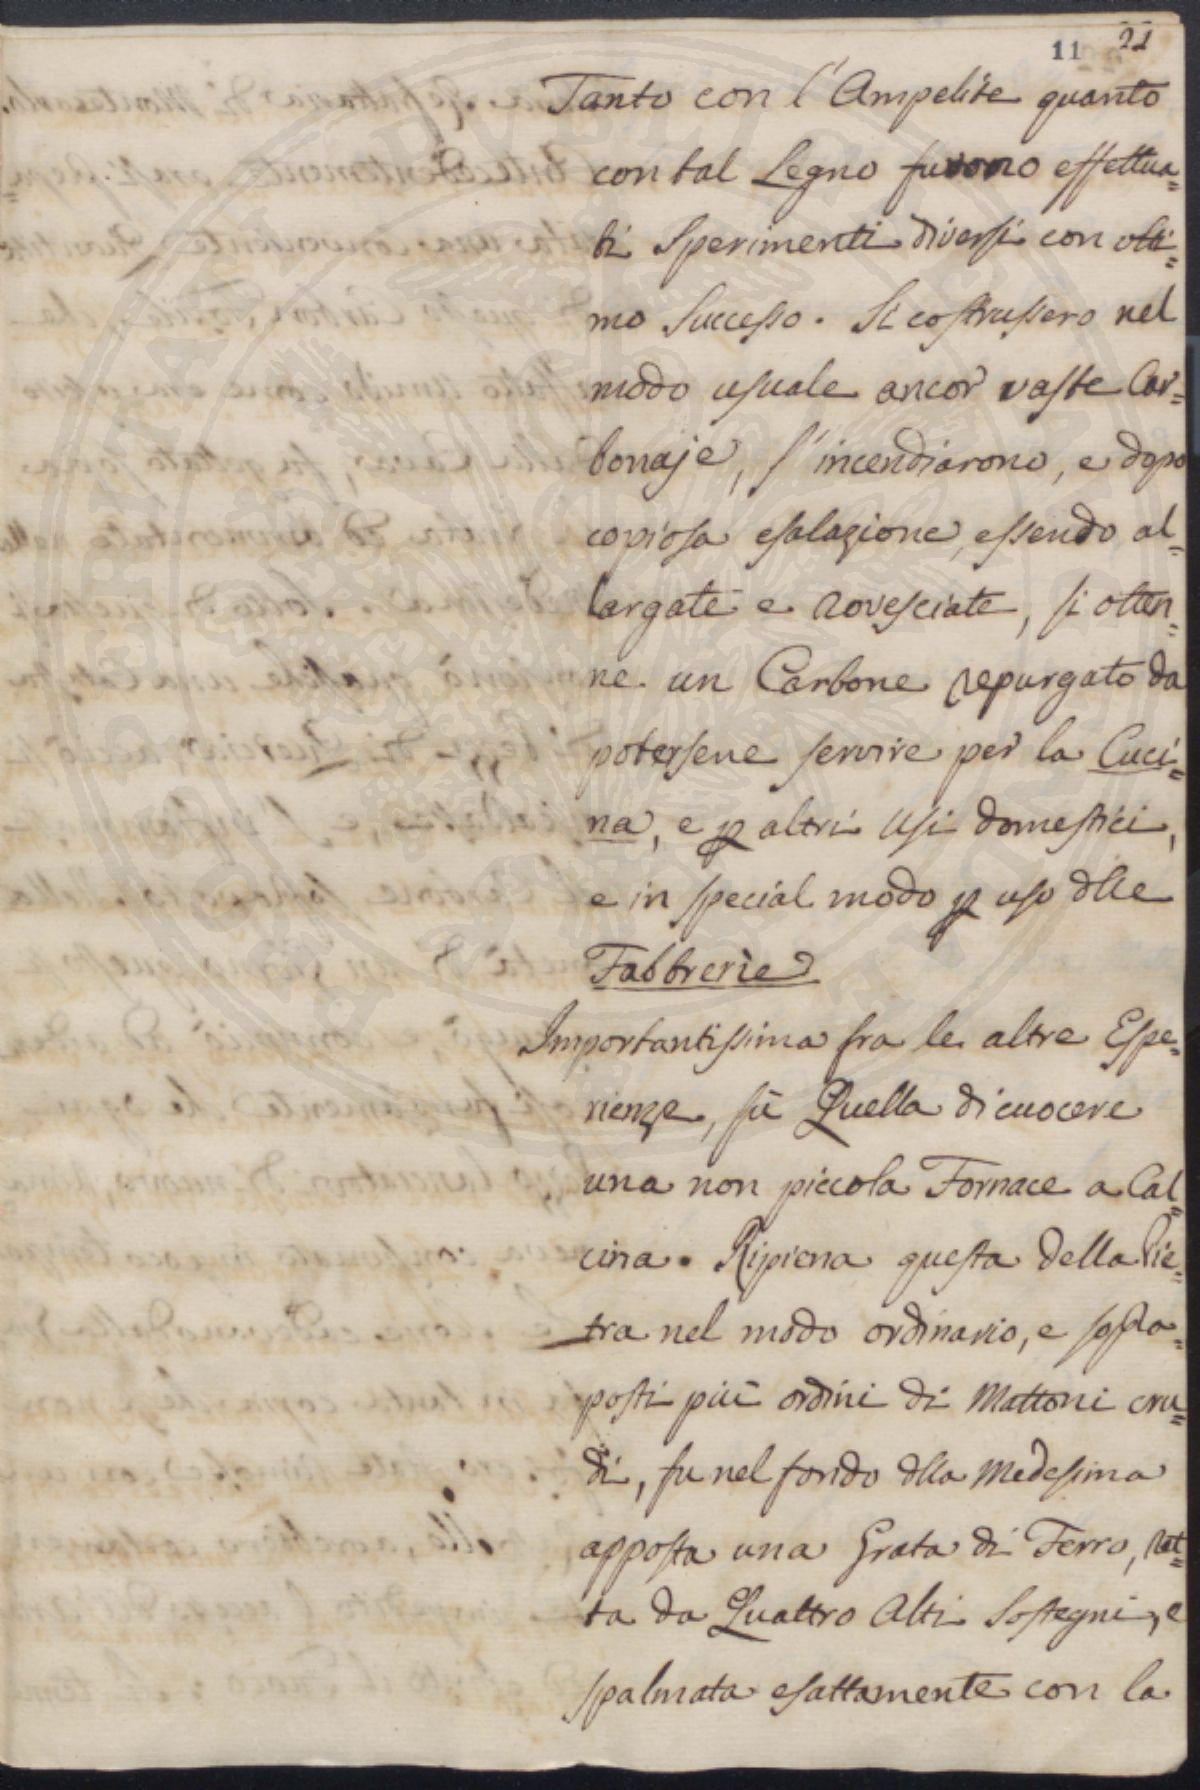 11 21
Tanto con l'Ampelite quanto
con tal Legno furono effettua=
ti Sperimenti diversi con otti=
mo Successo. Si costrussero nel
modo usuale ancor vaste Car=
bonaje, s'incendiarono, e dopo
copiosa esalazione, essendo al=
largate e rovesciate, si otten=
ne un Carbone repurgato da
potersene servire per la Cuci=
na, e p altri Usi domestici,
e in special modo p uso dlle
Fabbrerie
Importantissima fra le altre Espe=
rienze, fù Quella di cuocere
una non piccola Fornace a Cal=
cina. Ripiena questa della Pie=
tra nel modo ordinario, e sopra=
posti più ordini di Mattoni cru=
di, fu nel fondo dlla Medesima
apposta una Grata di Ferro, ret=
ta da Quattro Alti Sostegni, e
spalmata esattamente con la